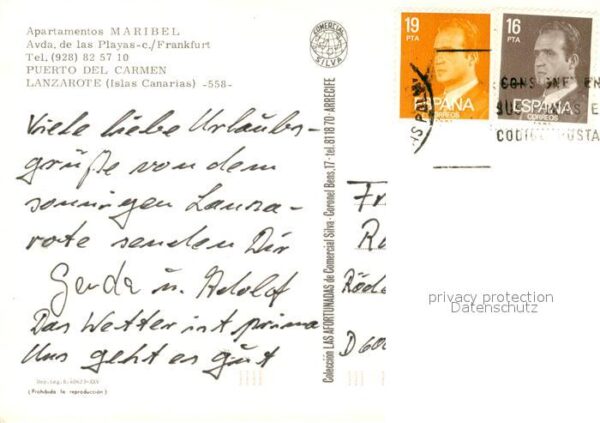 Apartamentos MARIBEL
Avda. de las Playas-c./Frankfurt
Tel. (928) 82 57 10
PUERTO DEL CARMEN
LANZAROTE (Islas Canarias) -558-
Viele liebe Urlaubs-
grüße von dem
sonnigen Lanza-
rote senden Dir
Gerda u. Adolf
Das Wetter ist prima
Uns geht es gut
Dep. Leg. B.
(Prohibida la reproducción)
COMERCIAL
SILVA
Colección LAS AFORTUNADAS de Comercial Silva - Coronel Bens, 17 - tel. 81 18 70 - ARRECIFE
19
PTA
ESPAÑA
CORREOS
16
PTA
ESPAÑA
CORREOS
CONSIGNE EN
SUS ... AS E
CODIGO POSTA
Fr
Ru
Röde
D 600
privacy protection
Datenschutz